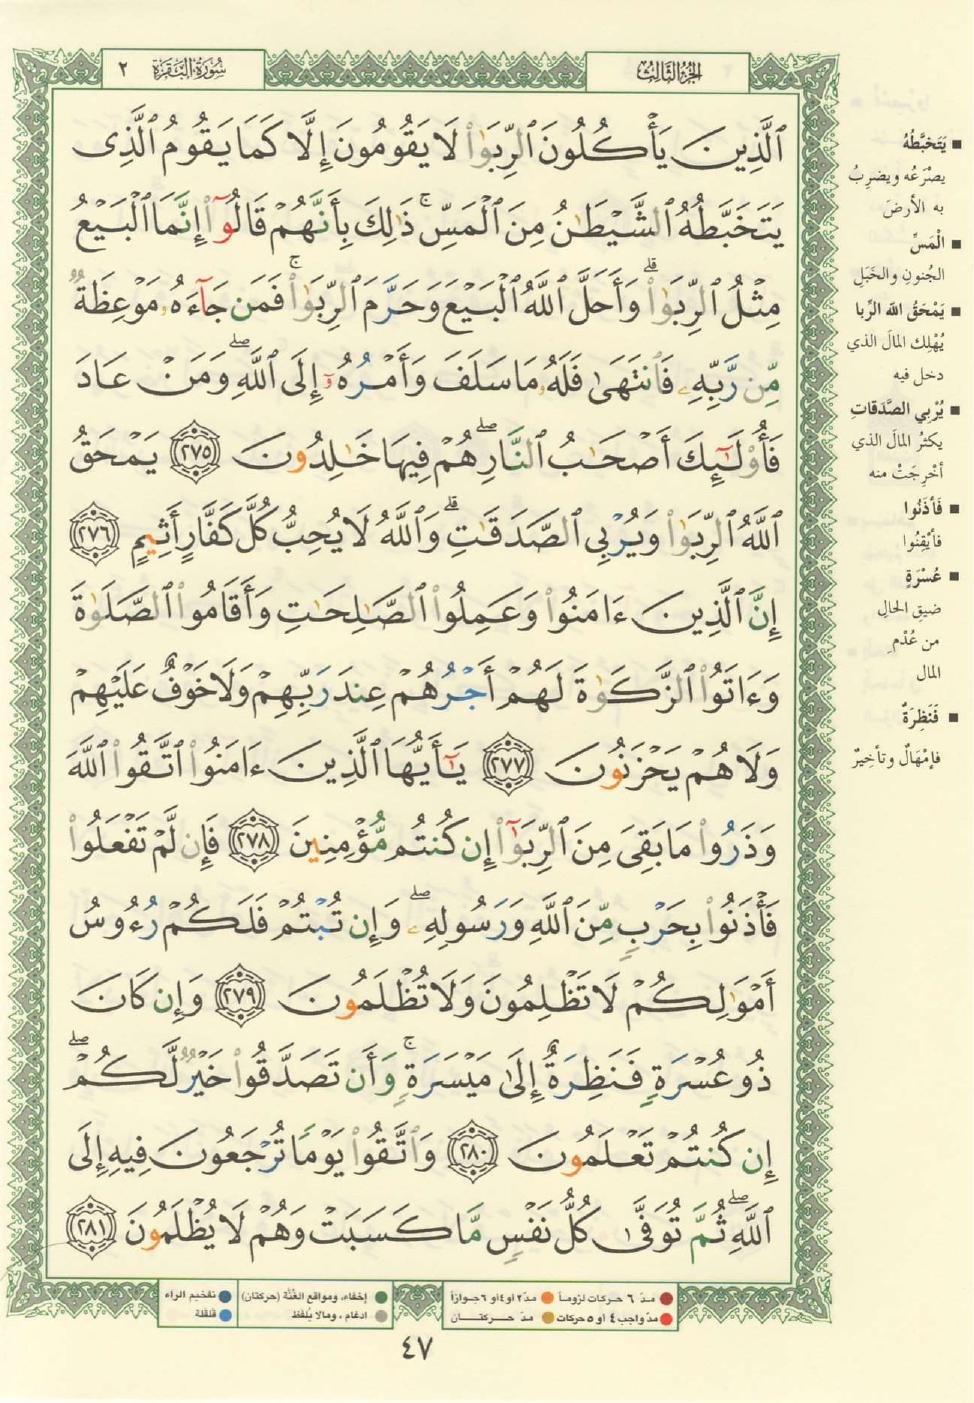 الجزء الثالث
سورة البقرة ٢
ٱلَّذِينَ يَأۡكُلُونَ ٱلرِّبَوٰاْ لَا يَقُومُونَ إِلَّا كَمَا يَقُومُ ٱلَّذِى
يَتَخَبَّطُهُ ٱلشَّيۡطَٰنُ مِنَ ٱلۡمَسِّۚ ذَٰلِكَ بِأَنَّهُمۡ قَالُوٓاْ إِنَّمَا ٱلۡبَيۡعُ
مِثۡلُ ٱلرِّبَوٰاْۗ وَأَحَلَّ ٱللَّهُ ٱلۡبَيۡعَ وَحَرَّمَ ٱلرِّبَوٰاْۚ فَمَن جَآءَهُۥ مَوۡعِظَةٞ
مِّن رَّبِّهِۦ فَٱنتَهَىٰ فَلَهُۥ مَا سَلَفَ وَأَمۡرُهُۥٓ إِلَى ٱللَّهِۖ وَمَنۡ عَادَ
فَأُوْلَٰٓئِكَ أَصۡحَٰبُ ٱلنَّارِۖ هُمۡ فِيهَا خَٰلِدُونَ ٢٧٥ يَمۡحَقُ
ٱللَّهُ ٱلرِّبَوٰاْ وَيُرۡبِى ٱلصَّدَقَٰتِۗ وَٱللَّهُ لَا يُحِبُّ كُلَّ كَفَّارٍ أَثِيمٍ ٢٧٦
إِنَّ ٱلَّذِينَ ءَامَنُواْ وَعَمِلُواْ ٱلصَّٰلِحَٰتِ وَأَقَامُواْ ٱلصَّلَوٰةَ
وَءَاتَوُاْ ٱلزَّكَوٰةَ لَهُمۡ أَجۡرُهُمۡ عِندَ رَبِّهِمۡ وَلَا خَوۡفٌ عَلَيۡهِمۡ
وَلَا هُمۡ يَحۡزَنُونَ ٢٧٧ يَٰٓأَيُّهَا ٱلَّذِينَ ءَامَنُواْ ٱتَّقُواْ ٱللَّهَ
وَذَرُواْ مَا بَقِىَ مِنَ ٱلرِّبَوٰٓاْ إِن كُنتُم مُّؤۡمِنِينَ ٢٧٨ فَإِن لَّمۡ تَفۡعَلُواْ
فَأۡذَنُواْ بِحَرۡبٖ مِّنَ ٱللَّهِ وَرَسُولِهِۦۖ وَإِن تُبۡتُمۡ فَلَكُمۡ رُءُوسُ
أَمۡوَٰلِكُمۡ لَا تَظۡلِمُونَ وَلَا تُظۡلَمُونَ ٢٧٩ وَإِن كَانَ
ذُو عُسۡرَةٖ فَنَظِرَةٌ إِلَىٰ مَيۡسَرَةٖۚ وَأَن تَصَدَّقُواْ خَيۡرٞ لَّكُمۡۖ
إِن كُنتُمۡ تَعۡلَمُونَ ٢٨٠ وَٱتَّقُواْ يَوۡمٗا تُرۡجَعُونَ فِيهِ إِلَى
ٱللَّهِۖ ثُمَّ تُوَفَّىٰ كُلُّ نَفۡسٖ مَّا كَسَبَتۡ وَهُمۡ لَا يُظۡلَمُونَ ٢٨١
■ يَتَخبَّطُهُ
يصْرَعُه ويضرِبُ
به الأرضَ
■ الْمَسِّ
الجُنونِ والخَبَلِ
■ يَمْحَقُ الله الرِّبا
يُهْلِك المالَ الذي
دخل فيه
■ يُرْبِي الصَّدَقاتِ
يكثرُ المالَ الذي
أخْرِجَتْ منه
■ فَأذَنُوا
فأيْقِنُوا
■ عُسْرَةٍ
ضيقِ الحالِ
من عُدْمِ
المال
■ فَنَظِرَةٌ
فإمْهَالٌ وتأخِيرٌ
مدّ ٦ حركات لزوماً
مدّ ٢ أو ٤ أو ٦ جوازاً
إخفاء، ومواقع الغُنَّة (حركتان)
تفخيم الراء
مدّ واجب ٤ أو ٥ حركات
مدّ حركتان
ادغام، ومالا يُلفَظ
قلقلة
٤٧